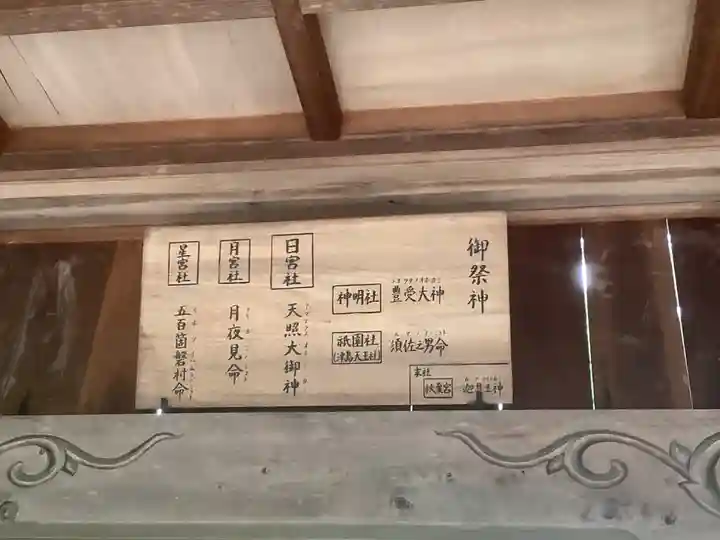 御祭神
神明社 豊受大神
祇園社 須佐之男命
(津島天王社)
末社
秋葉宮
日宮社 天照大御神
月宮社 月夜見命
星宮社 五百箇磐村命